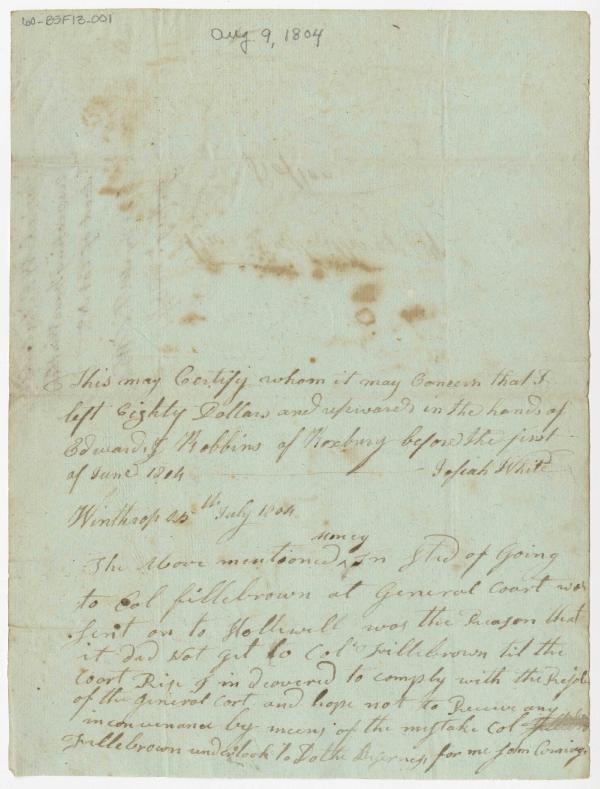 60-85F13-001
Aug 9, 1804
This may Certify whom it may Concern that I
left Eighty Dollars and upwards in the hands of
Edward Robbins of Roxbury before the first
of June 1804 Josiah White
Winthrop 25th July 1804
money
The above mentioned In Sted of Going
to Col fillebrown at General Court was
Sent on to Hollowell was the Reason that
it did Not get to Col Fillebrown til the
Court Rise I indeovered to comply with the Resolve
of the General Cort and hope not to Receive any
inconvenance by means of the mistake Col
Fillebrown undertook to Do the for me